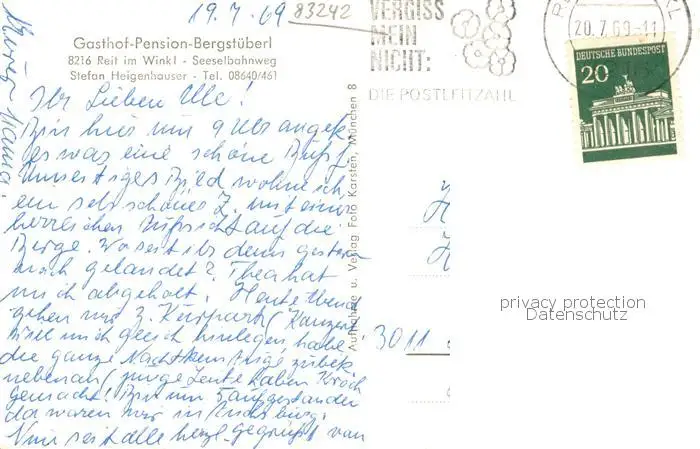 19.7.69 83242
Gasthof-Pension-Bergstüberl
8216 Reit im Winkl - Seeselbahnweg
Stefan Heigenhauser - Tel. 08640/461
Ihr Lieben Alle!
Bin hier um 9 Uhr angek
es war eine schöne Bus f.
Unser Bild wohne ich
ein sehr schönes Z. mit einer
herrlichen Aufsicht auf die
Berge. Wo seit ihr denn gestern
noch gelandet? Thea hat
mich abgeholt. Heute Abend
gehen wir z. Kurpark (Konzert
mich gleich hinlegen, habe
die ganze Nacht kein Auge
nebenan (junge Leute haben Krach
gemacht! Bin um 5 aufgestanden
da waren wir in
Nun seit alle herzl. gegrüßt von
Mama
Aufnahme u. Verlag Foto Karsten, München 8
VERGISS
MEIN
NICHT:
DIE POSTLEITZAHL
20.7.69-11
DEUTSCHE BUNDESPOST
20
3011
privacy protection
Datenschutz